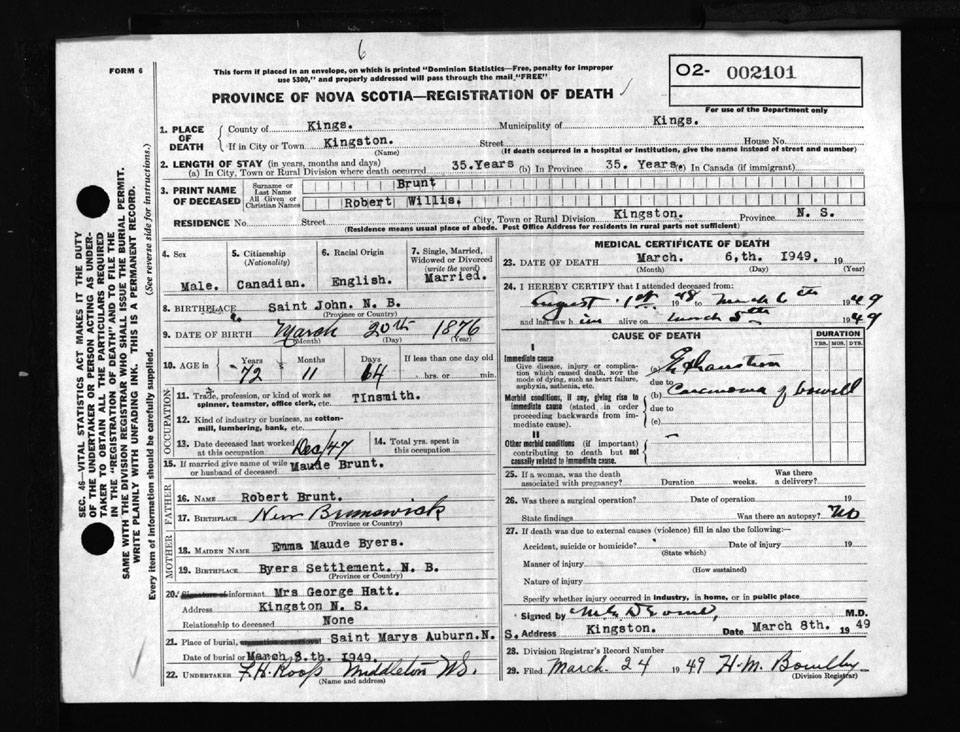 6
FORM 6
This form if placed in an envelope, on which is printed "Dominion Statistics—Free, penalty for improper
use $300," and properly addressed will pass through the mail "FREE"
O2- 002101
For use of the Department only
PROVINCE OF NOVA SCOTIA—REGISTRATION OF DEATH
SEC. 46—VITAL STATISTICS ACT MAKES IT THE DUTY
OF THE UNDERTAKER OR PERSON ACTING AS UNDER-
TAKER TO OBTAIN ALL THE PARTICULARS REQUIRED
IN THE "REGISTRATION OF DEATH" AND TO FILE THE
SAME WITH THE DIVISION REGISTRAR WHO SHALL ISSUE THE BURIAL PERMIT.
WRITE PLAINLY WITH UNFADING INK. THIS IS A PERMANENT RECORD.
Every item of information should be carefully supplied. (See reverse side for instructions.)
1. PLACE OF DEATH
County of Kings. Municipality of Kings.
If in City or Town Kingston. Street House No.
(Name) (If death occurred in a hospital or institution, give the name instead of street and number)
2. LENGTH OF STAY (in years, months and days)
(a) In City, Town or Rural Division where death occurred 35.Years (b) In Province 35. Years (c) In Canada (if immigrant)
3. PRINT NAME OF DECEASED
Surname or Last Name Brunt
All Given or Christian Names Robert Willis.
RESIDENCE No. Street City, Town or Rural Division Kingston. Province N. S.
(Residence means usual place of abode. Post Office Address for residents in rural parts not sufficient)
4. Sex
Male.
5. Citizenship
(Nationality)
Canadian.
6. Racial Origin
English.
7. Single, Married,
Widowed or Divorced
(write the word)
Married.
8. BIRTHPLACE Saint John. N. B.
(Province or Country)
9. DATE OF BIRTH March 20th 1876
(Month) (Day) (Year)
10. AGE in
Years 72
Months 11
Days 14
If less than one day old
hrs. or min.
OCCUPATION
11. Trade, profession, or kind of work as
spinner, teamster, office clerk, etc. Tinsmith.
12. Kind of industry or business, as cotton-
mill, lumbering, bank, etc.
13. Date deceased last worked
at this occupation Dec/47
14. Total yrs. spent in
this occupation
15. If married give name of wife
or husband of deceased Maude Brunt.
FATHER
16. NAME Robert Brunt.
17. BIRTHPLACE New Brunswick
(Province or Country)
MOTHER
18. MAIDEN NAME Emma Maude Byers.
19. BIRTHPLACE Byers Settlement. N. B.
(Province or Country)
20. Signature of informant Mrs George Hatt.
Address Kingston N. S.
Relationship to deceased None
21. Place of burial, Saint Marys Auburn.N.S.
Date of burial or March 8.th. 1949.
22. UNDERTAKER F.H. Roop Middleton NS.
(Name and address)
MEDICAL CERTIFICATE OF DEATH
23. DATE OF DEATH March. 6,th. 1949. 19
(Month) (Day) (Year)
24. I HEREBY CERTIFY that I attended deceased from:
August 1st 1948 to March 6th 1949
and last saw him alive on March 5th 1949
CAUSE OF DEATH
DURATION
YRS. MOS. DYS.
I
Immediate cause
Give disease, injury or complica-
tion which caused death, NOT the
mode of dying, such as heart failure,
asphyxia, asthenia, etc.
(a) Exhaustion
due to
Morbid conditions, if any, giving rise to
immediate cause (stated in order
proceeding backwards from im-
mediate cause).
(b) Carcinoma of bowell
due to
(c)
II
Other morbid conditions (if important)
contributing to death but not
causally related to immediate cause.
25. If a woman, was the death
associated with pregnancy? Duration weeks. Was there
a delivery?
26. Was there a surgical operation? Date of operation 19
State findings Was there an autopsy? No
27. If death was due to external causes (violence) fill in also the following:—
Accident, suicide or homicide? Date of injury 19
(State which)
Manner of injury
(How sustained)
Nature of injury
Specify whether injury occurred in industry, in home, or in public place
Signed by M.D.
Address Kingston. Date March 8th. 1949
28. Division Registrar's Record Number
29. Filed March. 24 1949 H.M.
(Division Registrar)